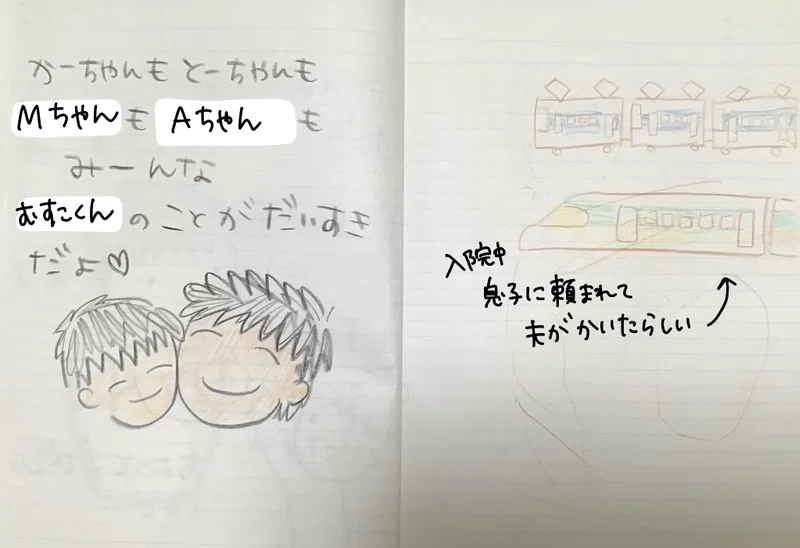 かーちゃんもとーちゃんも
Mちゃんも Aちゃんも
みーんな
むすこくんのことがだいすき
だよ♡
入院中
息子に頼まれて
夫がかいたらしい